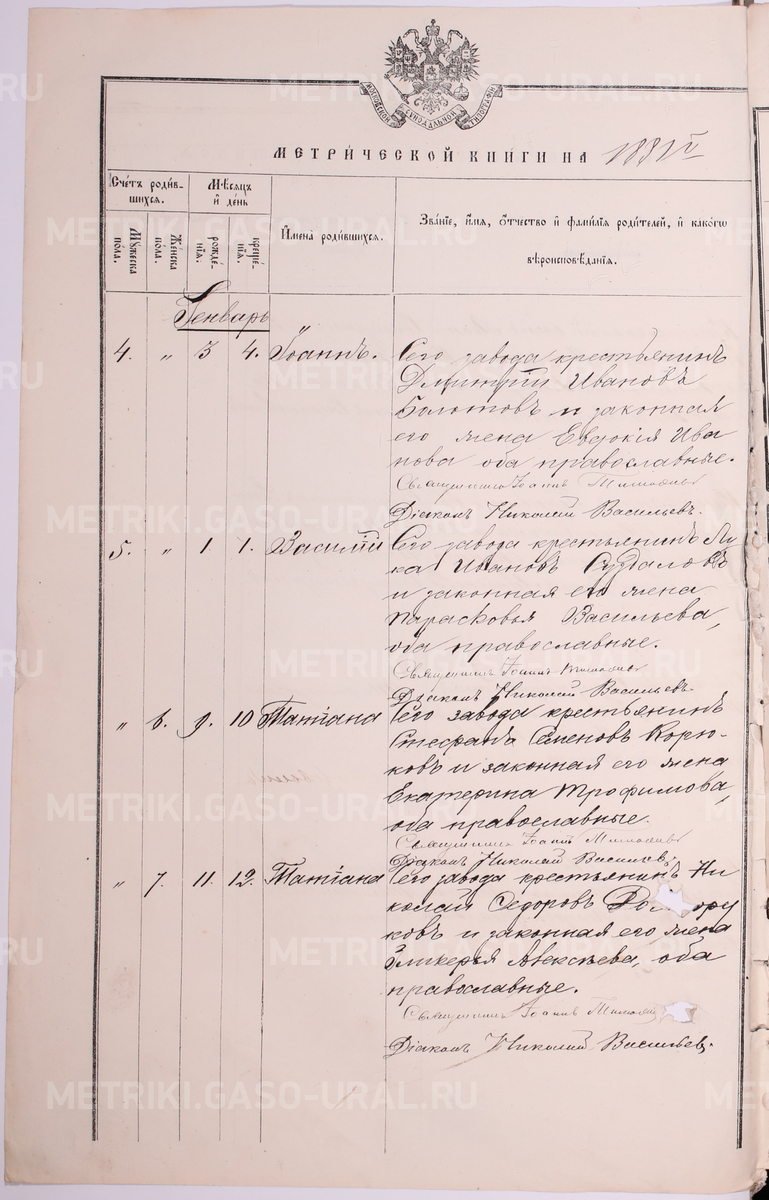 МОСКОВСКОЙ СѴНОДАЛЬНОЙ ТИПОГРАФІИ
МЕТРИЧЕСКОЙ КНИГИ НА 1881й
Счетъ родив-
шихся.
Мѣсяцъ
и день
Имена родившихся.
Званіе, имя, отчество и фамилія родителей, и какогѡ
вѣроисповѣданія.
Мужеска
пола.
Женска
пола.
рожде-
нія.
креще-
нія.
Генварь
4. „ 3 4. Іоаннъ. Сего завода крестьянинъ
Дмитрій Ивановъ
Болотовъ и законная
его жена Евдокія Ива
нова оба православные.
Священникъ Іоаннъ
Діаконъ Николай Васильевъ.
5. „ 1. 1. Василій Сего завода крестьянинъ Лу
ка Ивановъ Суздаловъ
и законная его жена
Парасковья Васильева,
оба православные.
Священникъ Іоаннъ
Діаконъ Николай Васильевъ
„ 6. 9. 10 Татіана Сего завода крестьянинъ
Стефанъ Семеновъ Корю-
ковъ и законная его жена
Екатерина Трофимова,
оба православные.
Священникъ Іоаннъ
Діаконъ Николай Васильевъ.
„ 7. 11. 12. Татіана Сего завода крестьянинъ Ни
колай Федоровъ
ковъ и законная его жена
Гликерья Алексѣева, оба
православные.
Священникъ Іоаннъ
Діаконъ Николай Васильевъ.
METRIKI.GASO-URAL.RU